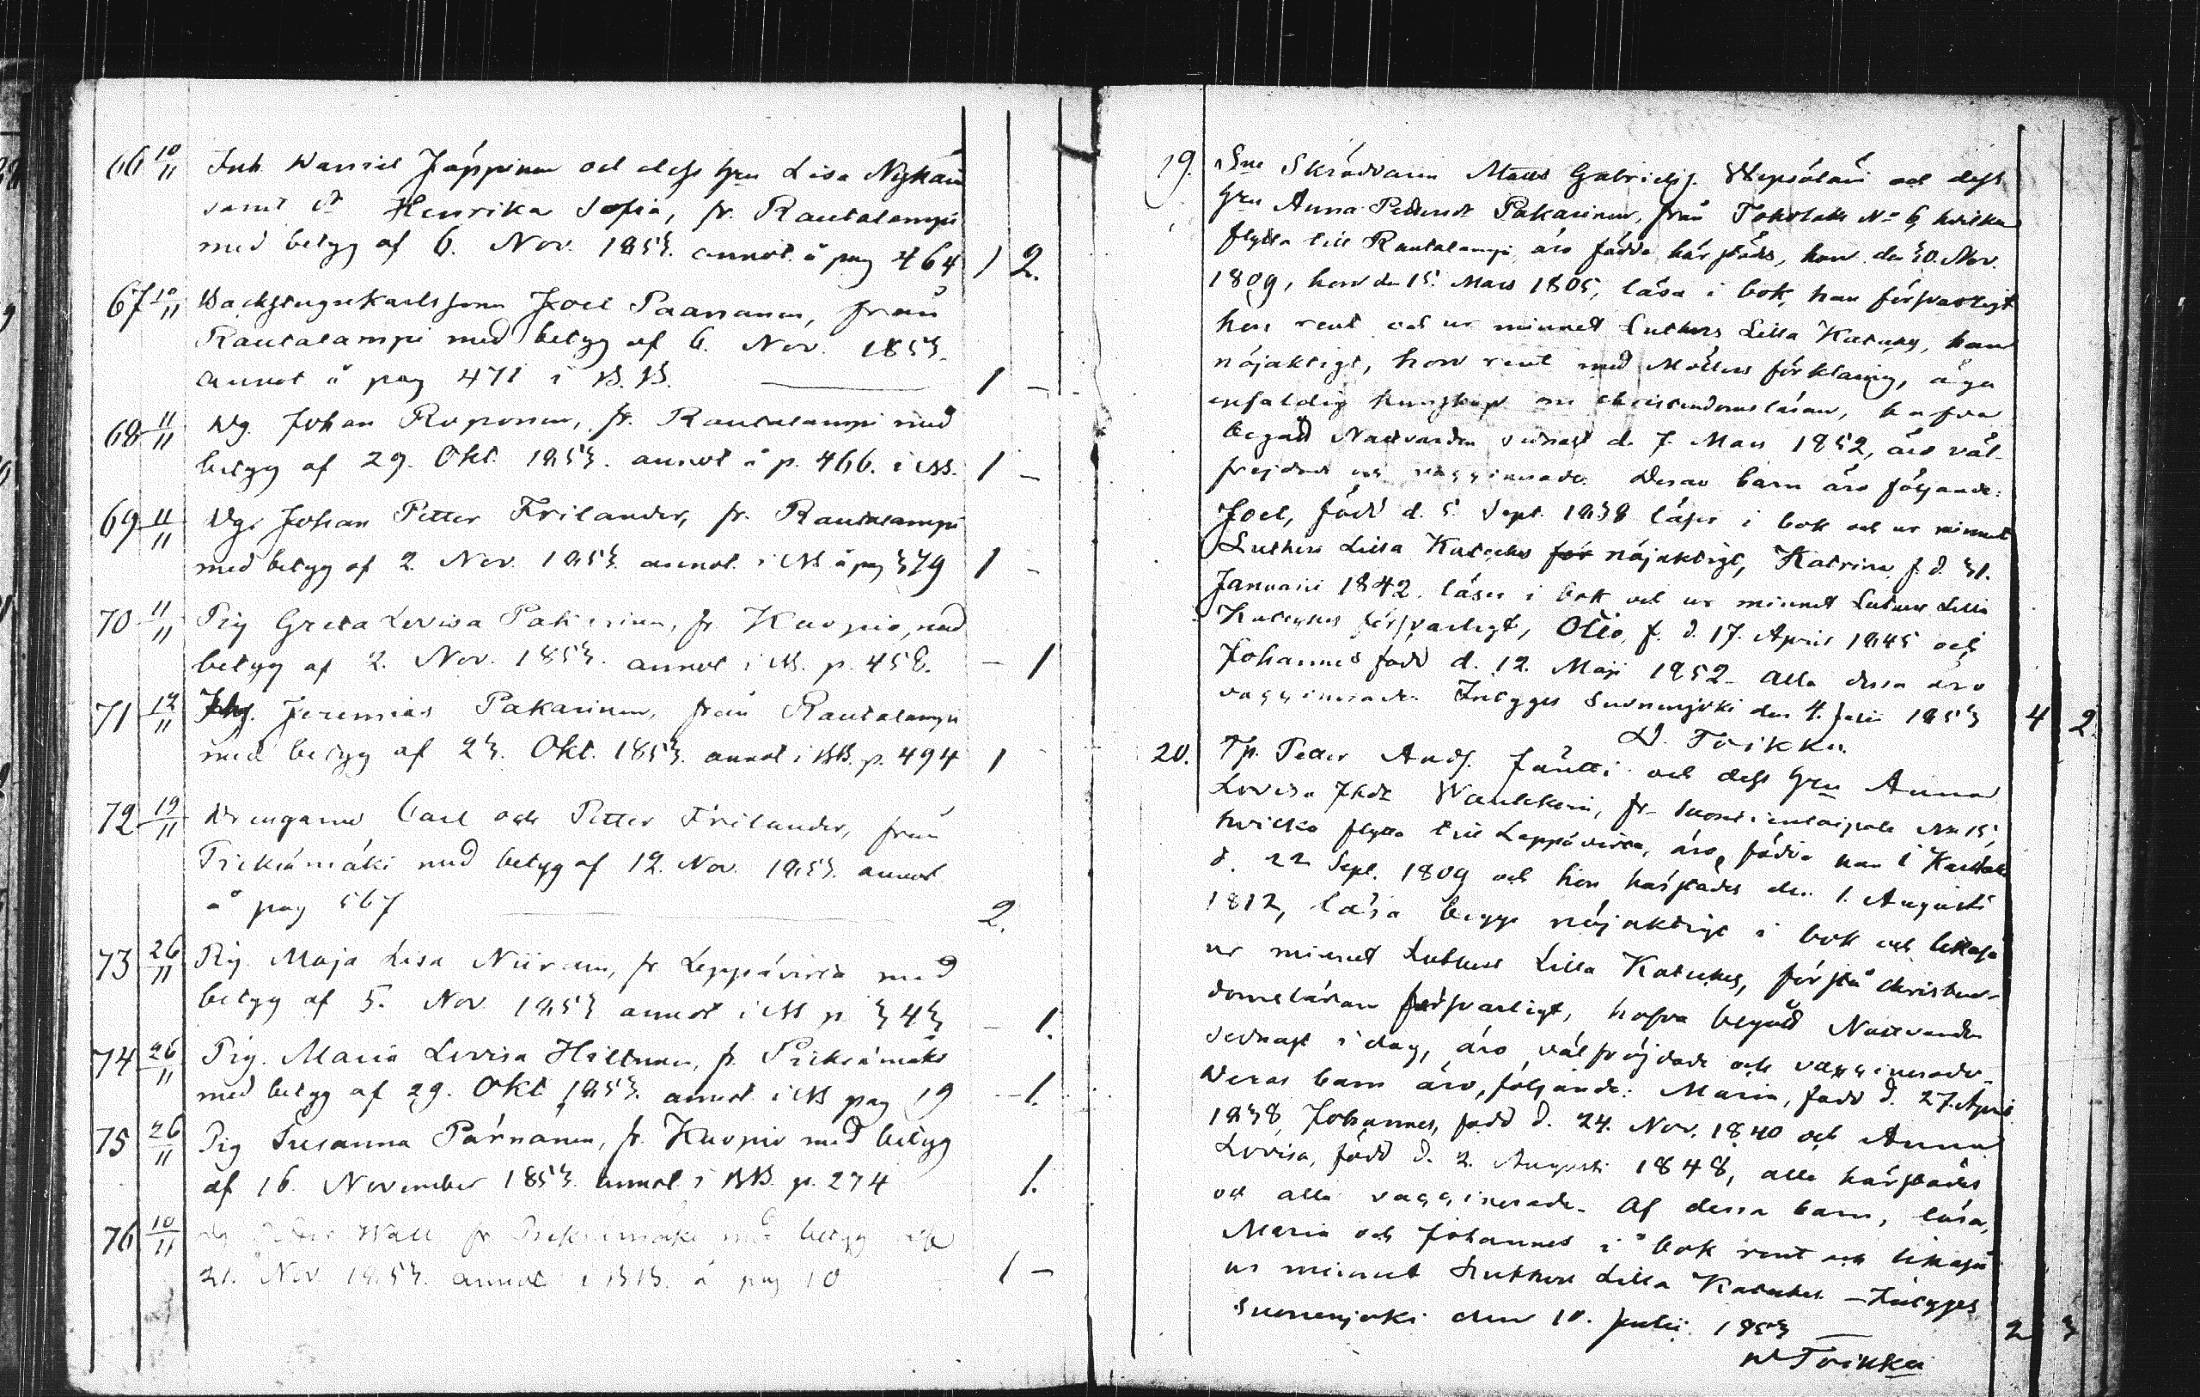 66 10/11 Inh. Daniel Jäppinen och dess hru Lisa Nykän
samt dr Henrika Sofia, fr. Rautalampi
med betyg af 6. Nov. 1853. annot. å pag 464 1 2.
67 10/11 Backstugukarlssonen Joel Paananen, från
Rautalampi med betyg af 6. Nov. 1853.
annot å pag 471 i BB. 1 -
68 11/11 Dg. Johan Roponen, fr. Rautalampi med
betyg af 29. Okt. 1853. annot å p. 466. i BB. 1 -
69 11/11 Dg. Johan Petter Frilander, fr. Rautalampi
med betyg af 2 Nov. 1853. annot. i BB å pag 379 1 -
70 11/11 Pig Greta Lovisa Pakarinen, fr. Kuopio, med
betyg af 2. Nov. 1853. annot i BB. p. 458. - 1
71 12/11 Jeremias Pakarinen, från Rautalampi
med betyg af 23. Okt. 1853. annot i BB. p. 494 1
72 19/11 Drengarne Carl och Petter Frilander, från
Pieksämäki med betyg af 12. Nov. 1853. annot
å pag 567 2.
73 26/11 Pig. Maja Lisa Niiranen, fr Leppävirta med
betyg af 5. Nov 1853 annot i BB p 343 - 1.
74 26/11 Pig. Maria Lovisa Hiltunen, fr. Pieksämäki
med betyg af 29. Okt 1853. annot. i BB pag 19 - 1.
75 26/11 Pig Susanna Pärnänen, fr. Kuopio med betyg
af 16. November 1853. annot i BB. p. 274 1.
76 10/11 Dg Wall fr Pieksämäki med betyg af
21. Nov 1853. annot i BB. å pag 10 1 -
19. Sne Skräddarn Matts Gabrielss. Wepsäläin och dess
hru Anna Pettersdr Pakarinen, från Toholaks No 6 hvilka
flytta till Rautalampi, äro födde härstädes, han den 30. Nov.
1809, hon den 15. Mars 1805, läsa i bok, han försvarligt
hon rent och ur minnet Luthers Lilla Kateches, han
nöjaktigt, hon rent med Möllers förklaring, äga
enfaldig kunskap om christendomsläran, hafva
begått Nattvarden sednast d. 7. Mars 1852, äro väl-
frejdade och vaccinerade. Deras barn äro följande:
Joel, född d. 5 Sept. 1838 läser i bok och ur minnet
Luthers Lilla Kateches för nöjaktigt, Katrina f. d. 31.
Januarii 1842. läser i bok och ur minnet Luthers Lilla
Kateches försvarligt, Otto, f. d. 17. April 1845 och
Johannes född d. 12. Maji 1852. Alla dessa äro
vaccinerade. Intygges Suonenjoki den 4. Julii 1853 4 2.
D. Toikka.
20. Tp. Petter Ands. Jäntti och dess hru Anna
Lovisa Jhdr Wantikain, fr. Suontientaipale No 15,
hvilka flytta till Leppävirta, äro födde han i Karttula
d. 22 Sept. 1809 och hon härstädes den 1. Augusti
1812, läsa begge nöjaktigt i bok och likaså
ur minnet Luthers Lilla Kateches, förstå christen-
domsläran försvarligt, hafva begått Nattvarden
sednast i dag, äro välfrejdade och vaccinerade.
Deras barn äro följande: Maria, född d. 27. April
1838, Johannes, född d. 24. Nov. 1840 och Anna
Lovisa, född d. 2. Augusti 1848, alla härstädes
och alla vaccinerade. Af dessa barn, läsa,
Maria och Johannes i bok rent och likaså
ur minnet Luthers Lilla Kateches - Intygges
Suonenjoki den 10. Julii 1853 2 3
D Toikka